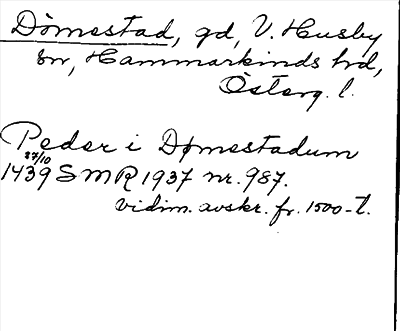 Dömestad, gd, V. Husby
sn, Hammarkinds hd,
Österg. l.
Peder i Dømestadum
27/10
1439 SMR 1937 nr. 987.
vidim. avskr. fr. 1500-t.